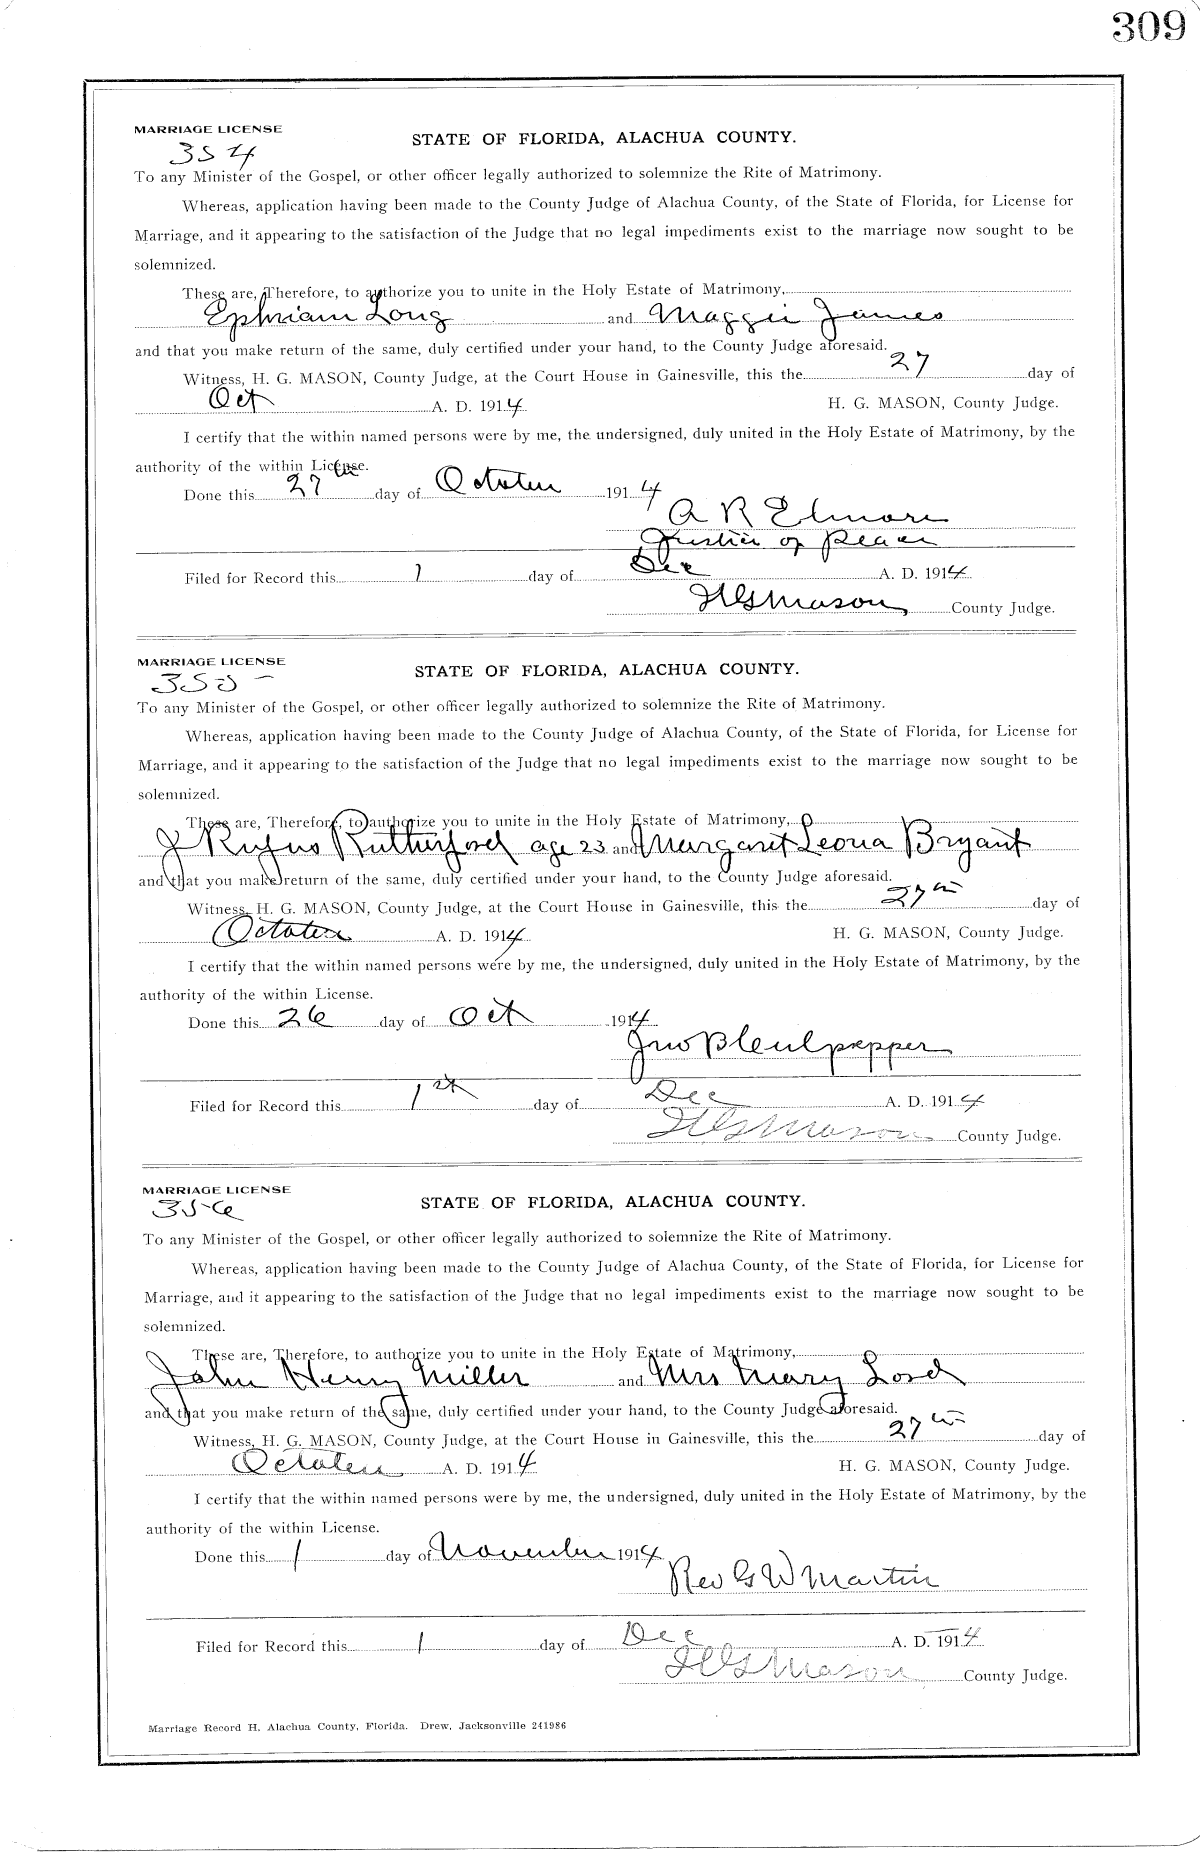 309
MARRIAGE LICENSE
354
STATE OF FLORIDA, ALACHUA COUNTY.
To any Minister of the Gospel, or other officer legally authorized to solemnize the Rite of Matrimony.
Whereas, application having been made to the County Judge of Alachua County, of the State of Florida, for License for
Marriage, and it appearing to the satisfaction of the Judge that no legal impediments exist to the marriage now sought to be
solemnized.
These are, Therefore, to authorize you to unite in the Holy Estate of Matrimony,
Ephriam Long and Maggie James
and that you make return of the same, duly certified under your hand, to the County Judge aforesaid.
Witness, H. G. MASON, County Judge, at the Court House in Gainesville, this the 27 day of
Oct A. D. 1914 H. G. MASON, County Judge.
I certify that the within named persons were by me, the undersigned, duly united in the Holy Estate of Matrimony, by the
authority of the within License.
Done this 27th day of October 1914
A R Elmore
Justice of Peace
Filed for Record this 1 day of Dec A. D. 1914
H G Mason, County Judge.
MARRIAGE LICENSE
355
STATE OF FLORIDA, ALACHUA COUNTY.
To any Minister of the Gospel, or other officer legally authorized to solemnize the Rite of Matrimony.
Whereas, application having been made to the County Judge of Alachua County, of the State of Florida, for License for
Marriage, and it appearing to the satisfaction of the Judge that no legal impediments exist to the marriage now sought to be
solemnized.
These are, Therefore, to authorize you to unite in the Holy Estate of Matrimony,
J Rufus Rutherford age 23 and Margaret Leona Bryant
and that you make return of the same, duly certified under your hand, to the County Judge aforesaid.
Witness, H. G. MASON, County Judge, at the Court House in Gainesville, this the 27th day of
October A. D. 1914 H. G. MASON, County Judge.
I certify that the within named persons were by me, the undersigned, duly united in the Holy Estate of Matrimony, by the
authority of the within License.
Done this 26 day of Oct 1914
Jno B Culpepper
Filed for Record this 1st day of Dec A. D. 1914
H G Mason County Judge.
MARRIAGE LICENSE
356
STATE OF FLORIDA, ALACHUA COUNTY.
To any Minister of the Gospel, or other officer legally authorized to solemnize the Rite of Matrimony.
Whereas, application having been made to the County Judge of Alachua County, of the State of Florida, for License for
Marriage, and it appearing to the satisfaction of the Judge that no legal impediments exist to the marriage now sought to be
solemnized.
These are, Therefore, to authorize you to unite in the Holy Estate of Matrimony,
John Henry Miller and Mrs Mary Lord
and that you make return of the same, duly certified under your hand, to the County Judge aforesaid.
Witness, H. G. MASON, County Judge, at the Court House in Gainesville, this the 27th day of
October A. D. 1914 H. G. MASON, County Judge.
I certify that the within named persons were by me, the undersigned, duly united in the Holy Estate of Matrimony, by the
authority of the within License.
Done this 1 day of November 1914
Rev G W Martin
Filed for Record this 1 day of Dec A. D. 1914
H G Mason County Judge.
Marriage Record H. Alachua County, Florida. Drew, Jacksonville 241986